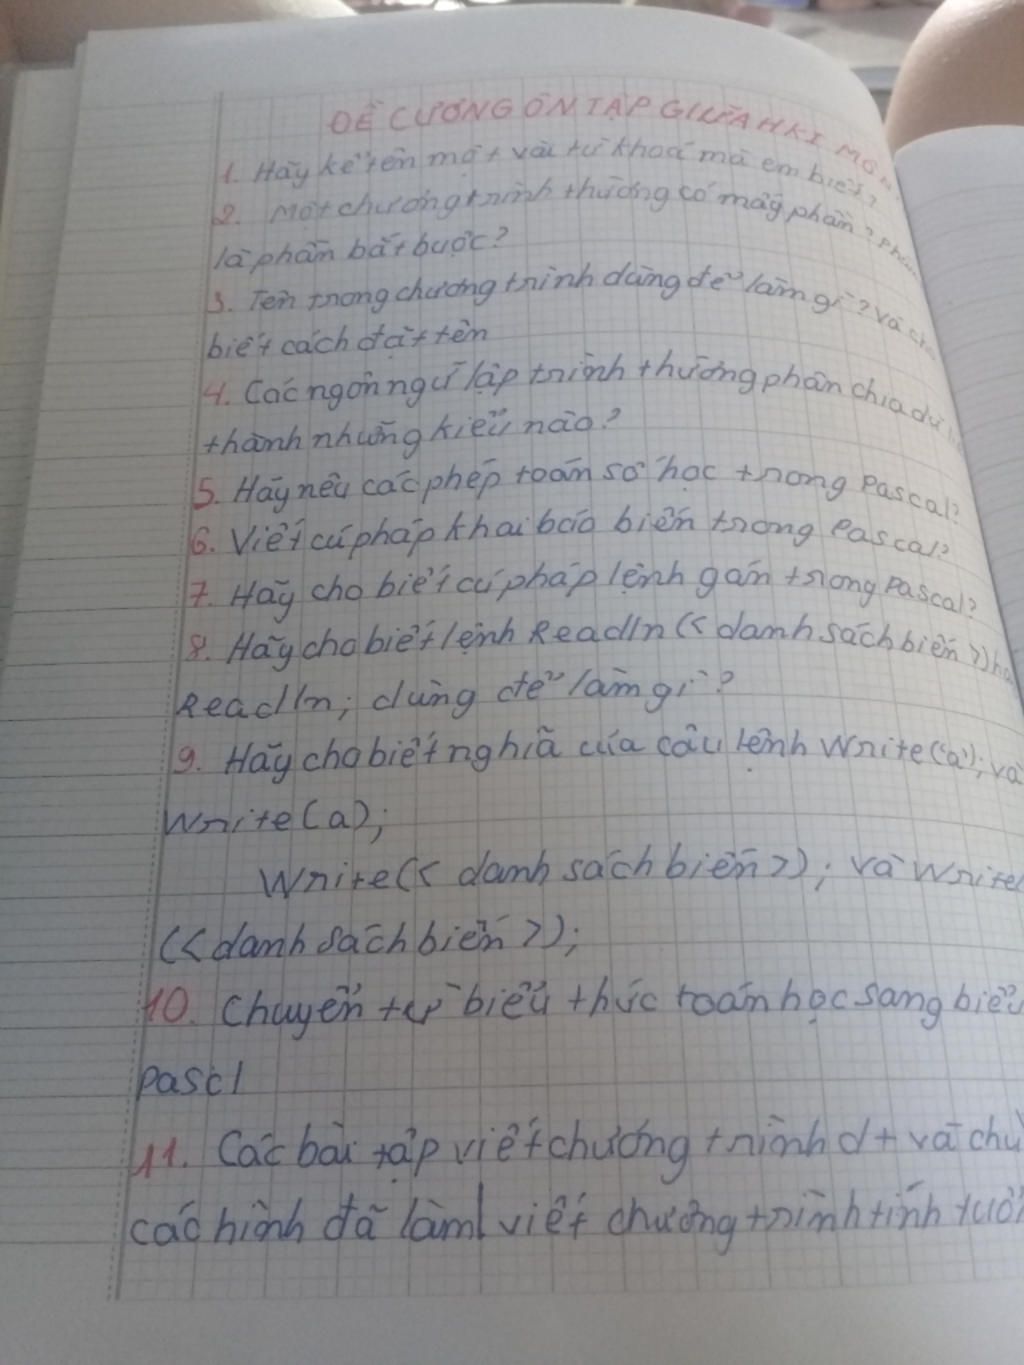 ĐỀ CƯƠNG ÔN TẬP GIỮA HKI MÔN
1. Hãy kể tên một vài từ khoá mà em biết?
2. Một chương trình thường có mấy phần? Phần
là phần bắt buộc?
3. Tên trong chương trình dùng để làm gì? Và cho
biết cách đặt tên
4. Các ngôn ngữ lập trình thường phân chia dữ
thành những kiểu nào?
5. Hãy nêu các phép toán số học trong Pascal?
6. Viết cú pháp khai báo biến trong Pascal?
7. Hãy cho biết cú pháp lệnh gán trong Pascal?
8. Hãy cho biết lệnh Readln (< danh sách biến >)
Readln; dùng để làm gì?
9. Hãy cho biết nghĩa của câu lệnh Write('a'); và
Write(a);
Write(< danh sách biến >); và Write
(< danh sách biến >);
10. Chuyển từ biểu thức toán học sang biểu
pascl
11. Các bài tập viết chương trình dt và chu
các hình đã làm viết chương trình tính